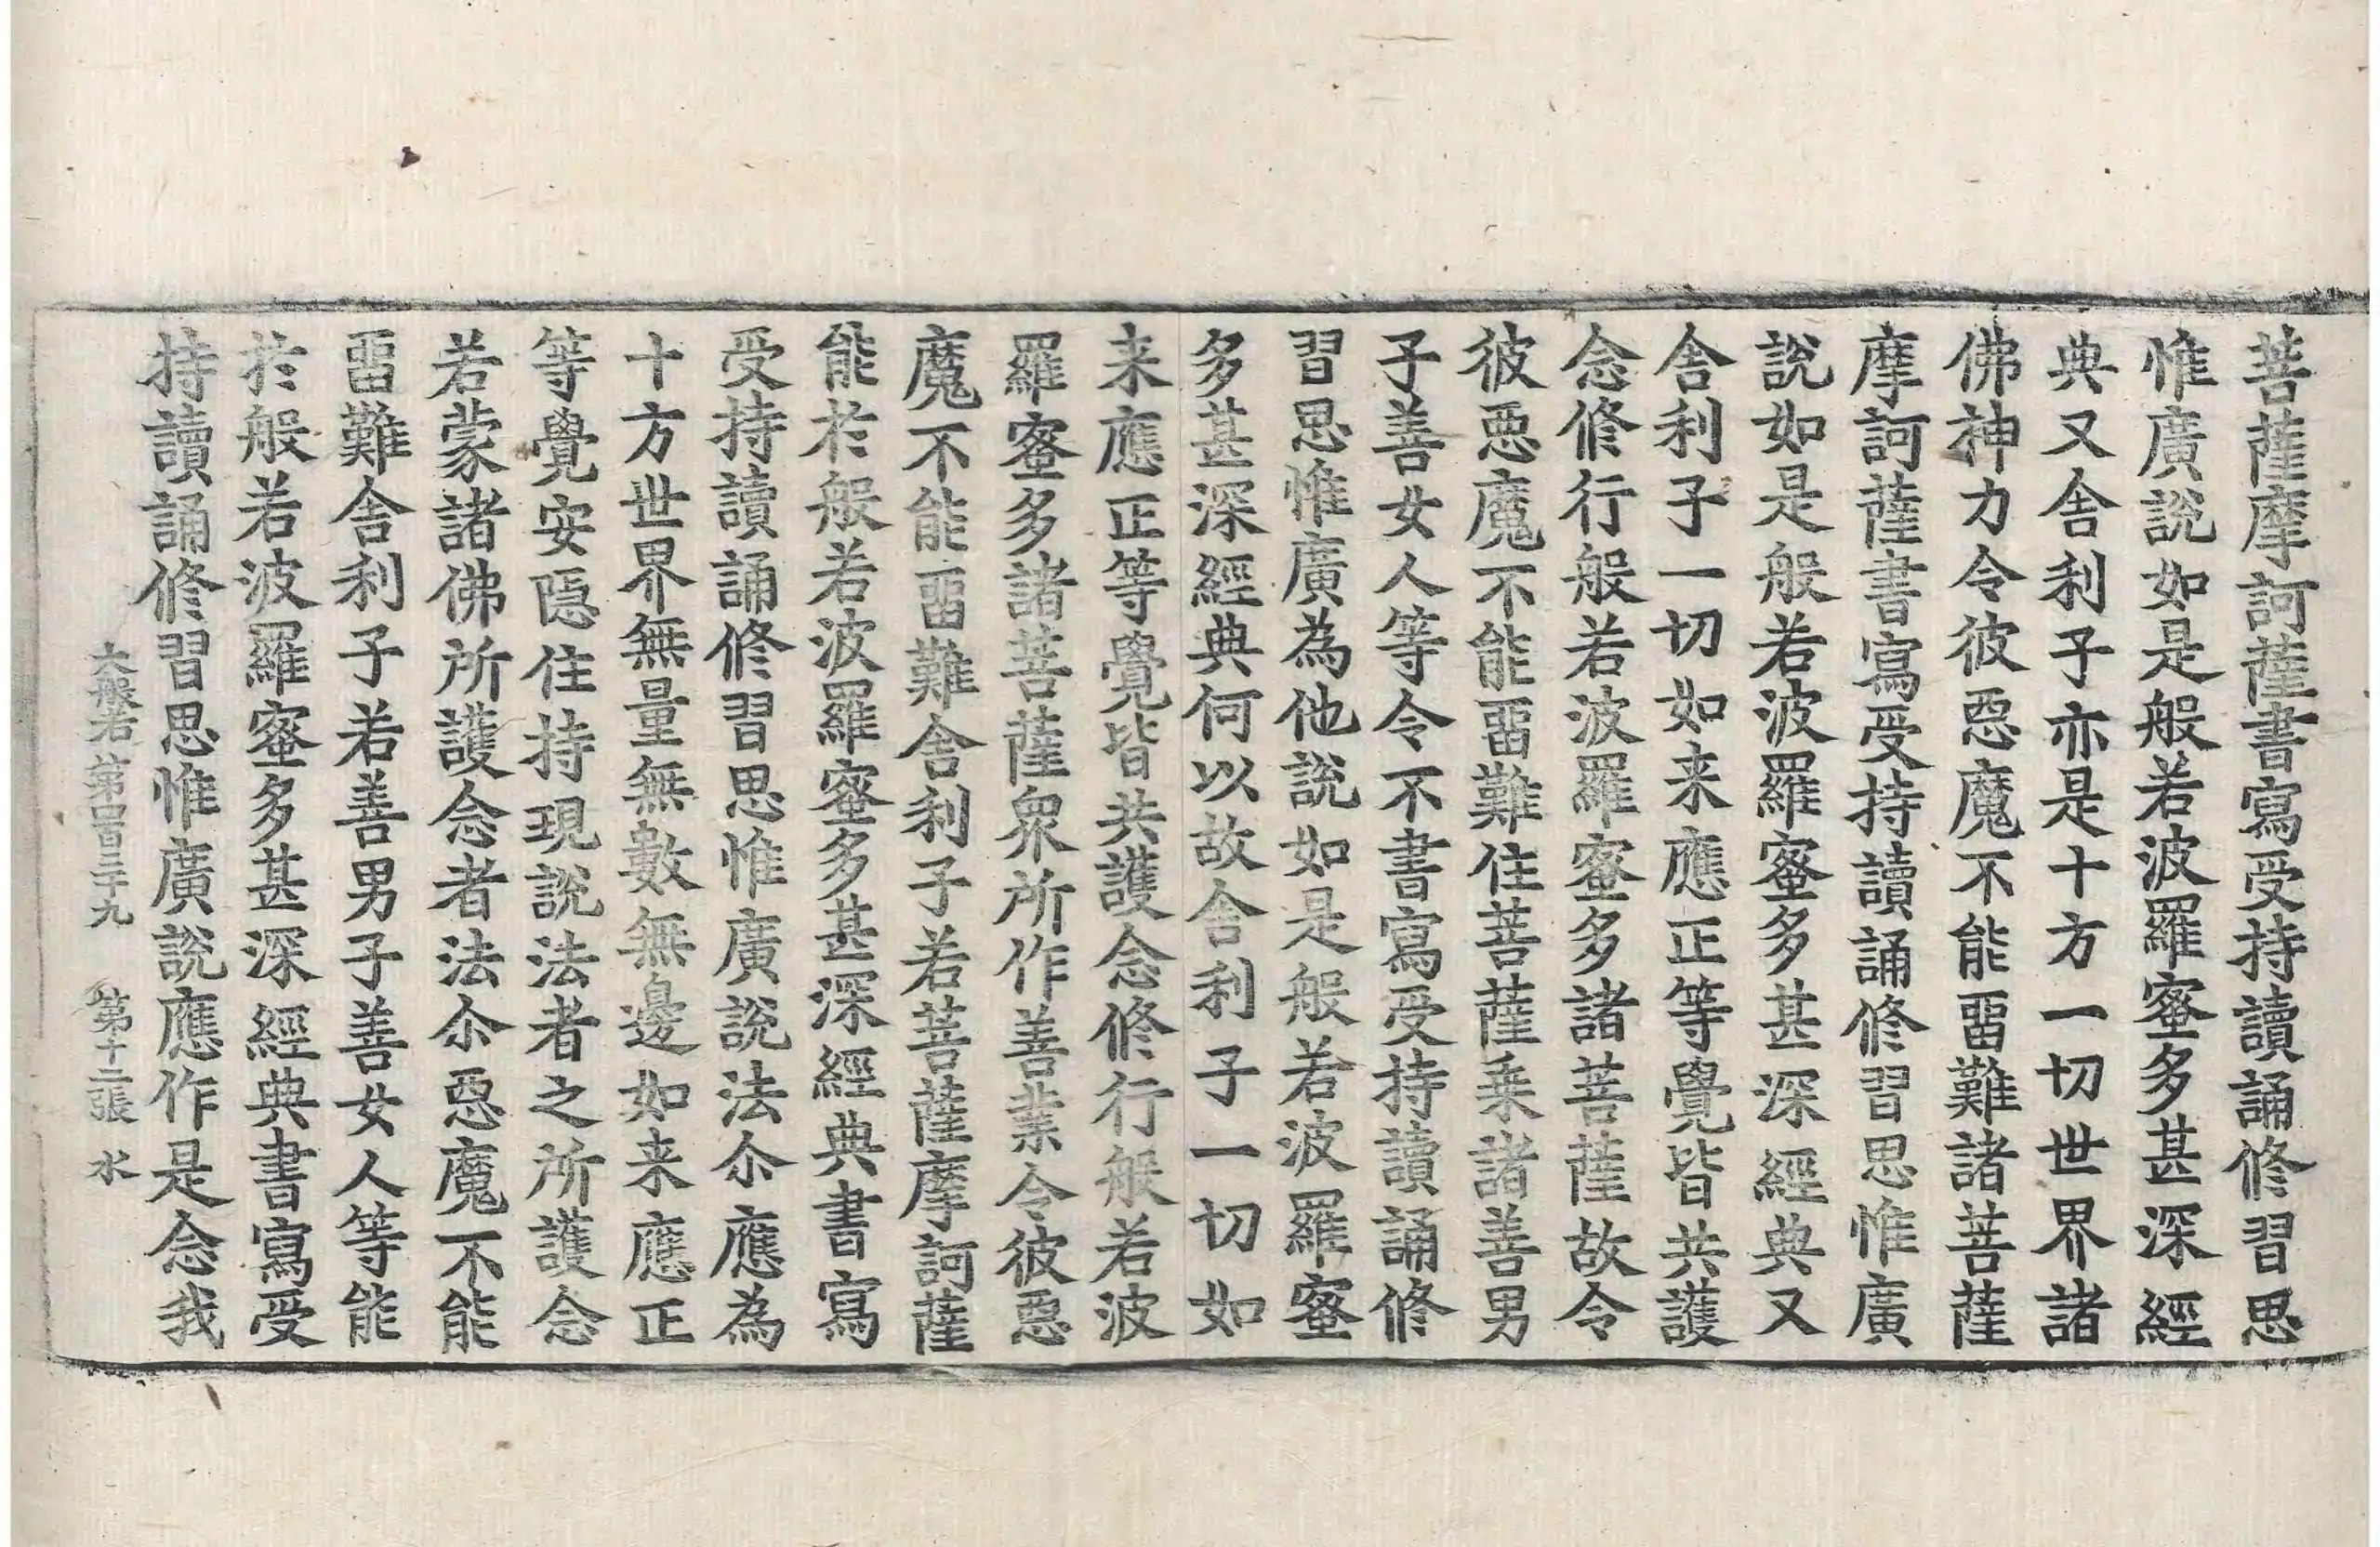 菩薩摩訶薩書寫受持讀誦修習思
惟廣說如是般若波羅蜜多甚深經
典又舍利子亦是十方一切世界諸
佛神力令彼惡魔不能留難諸菩薩
摩訶薩書寫受持讀誦修習思惟廣
說如是般若波羅蜜多甚深經典又
舍利子一切如来應正等覺皆共護
念修行般若波羅蜜多諸菩薩故令
彼惡魔不能留難住菩薩乗諸善男
子善女人等令不書寫受持讀誦修
習思惟廣為他說如是般若波羅蜜
多甚深經典何以故舍利子一切如
来應正等覺皆共護念修行般若波
羅蜜多諸菩薩眾所作善業令彼惡
魔不能留難舍利子若菩薩摩訶薩
能於般若波羅蜜多甚深經典書寫
受持讀誦修習思惟廣說法尒應為
十方世界無量無數無邊如来應正
等覺安隱住持現說法者之所護念
若蒙諸佛所護念者法尒惡魔不能
留難舍利子若善男子善女人等能
於般若波羅蜜多甚深經典書寫受
持讀誦修習思惟廣說應作是念我
大般若第四百三十九 第十二張 水